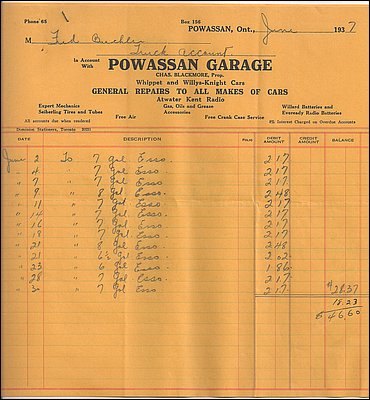 Phone 65 Box 156
POWASSAN, Ont., June 1937
M Fred Buechler
Truck Account
In Account With POWASSAN GARAGE
CHAS. BLACKMORE, Prop.
Whippet and Willys-Knight Cars
GENERAL REPAIRS TO ALL MAKES OF CARS
Atwater Kent Radio
Expert Mechanics Gas, Oils and Grease Willard Batteries and
Seiberling Tires and Tubes Accessories Eveready Radio Batteries
All accounts due when rendered Free Air Free Crank Case Service 8% Interest Charged on Overdue Accounts
Dominion Stationers, Toronto
DATE DESCRIPTION FOLIO DEBIT AMOUNT CREDIT AMOUNT BALANCE
June 2 To 7 Gal. Esso. 217
" 4 " 7 Gal. Esso. 217
" 7 " 7 Gal. Esso. 217
" 9 " 8 Gal. Esso. 248
" 11 " 7 Gal. Esso. 217
" 14 " 7 Gal. Esso. 217
" 16 " 7 Gal. Esso. 217
" 18 " 7 Gal. Esso. 217
" 21 " 8 Gal. Esso. 248
" 21 " 6½ Gal. Esso. 202
" 23 " 6 Gal. Esso. 186
" 28 " 7 Gal. Esso. 217
" 30 " 7 Gal Esso 217 $28.37
18.23
$46.60